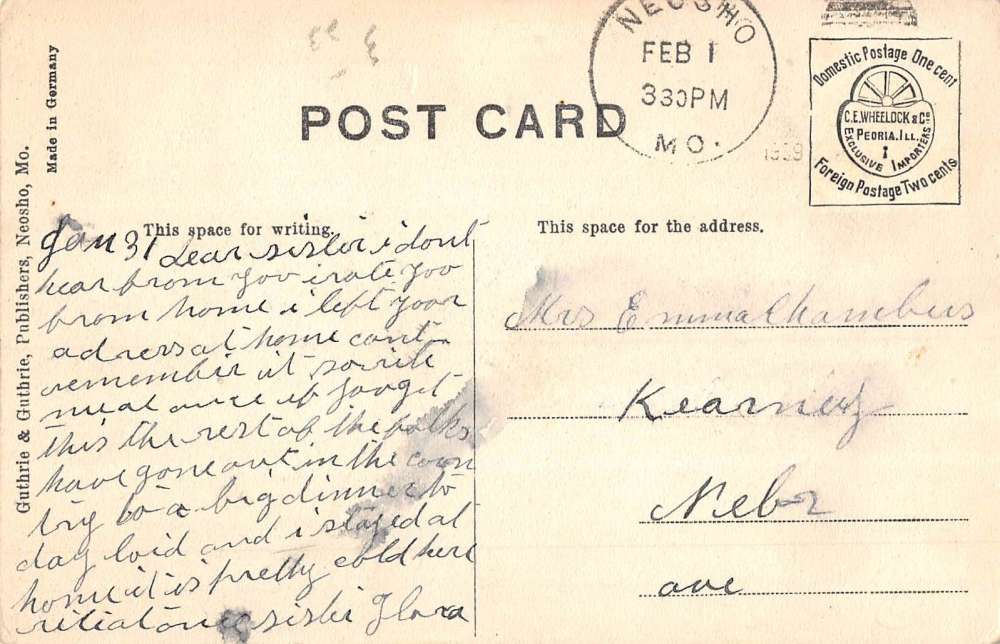 NEOSHO
FEB 1
330PM
MO.
1909
Domestic Postage One cent
C.E. WHEELOCK & Co
PEORIA. ILL.
EXCLUSIVE IMPORTERS
Foreign Postage Two cents
POST CARD
Made in Germany
Guthrie & Guthrie, Publishers, Neosho, Mo.
This space for writing.
Jan 31 Dear sister i dont
hear from yoo i rote yoo
from home i left yoor
adress at home cant
remember it so rite
me at once if forget
this the rest of the folks
have gone out in the coun
try to a big dinner to
day loid and i stayed at
home it is pretty cold here
rite at once sister Flora
This space for the address.
Mrs Emma Chambers
Kearney
Nebr
ave